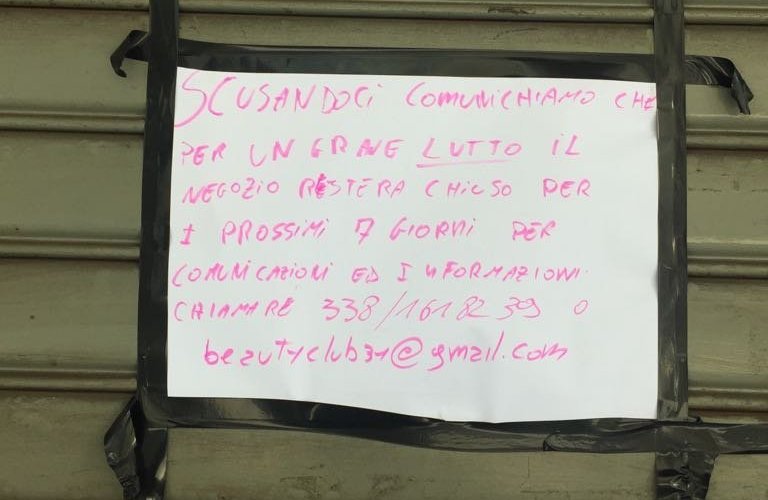 SCUSANDOCI COMUNICHIAMO CHE
PER UN GRAVE LUTTO IL
NEGOZIO RESTERA CHIUSO PER
I PROSSIMI 7 GIORNI PER
COMUNICAZIONI ED INFORMAZIONI
CHIAMARE 338/1618239 O
beautyclub31@gmail.com